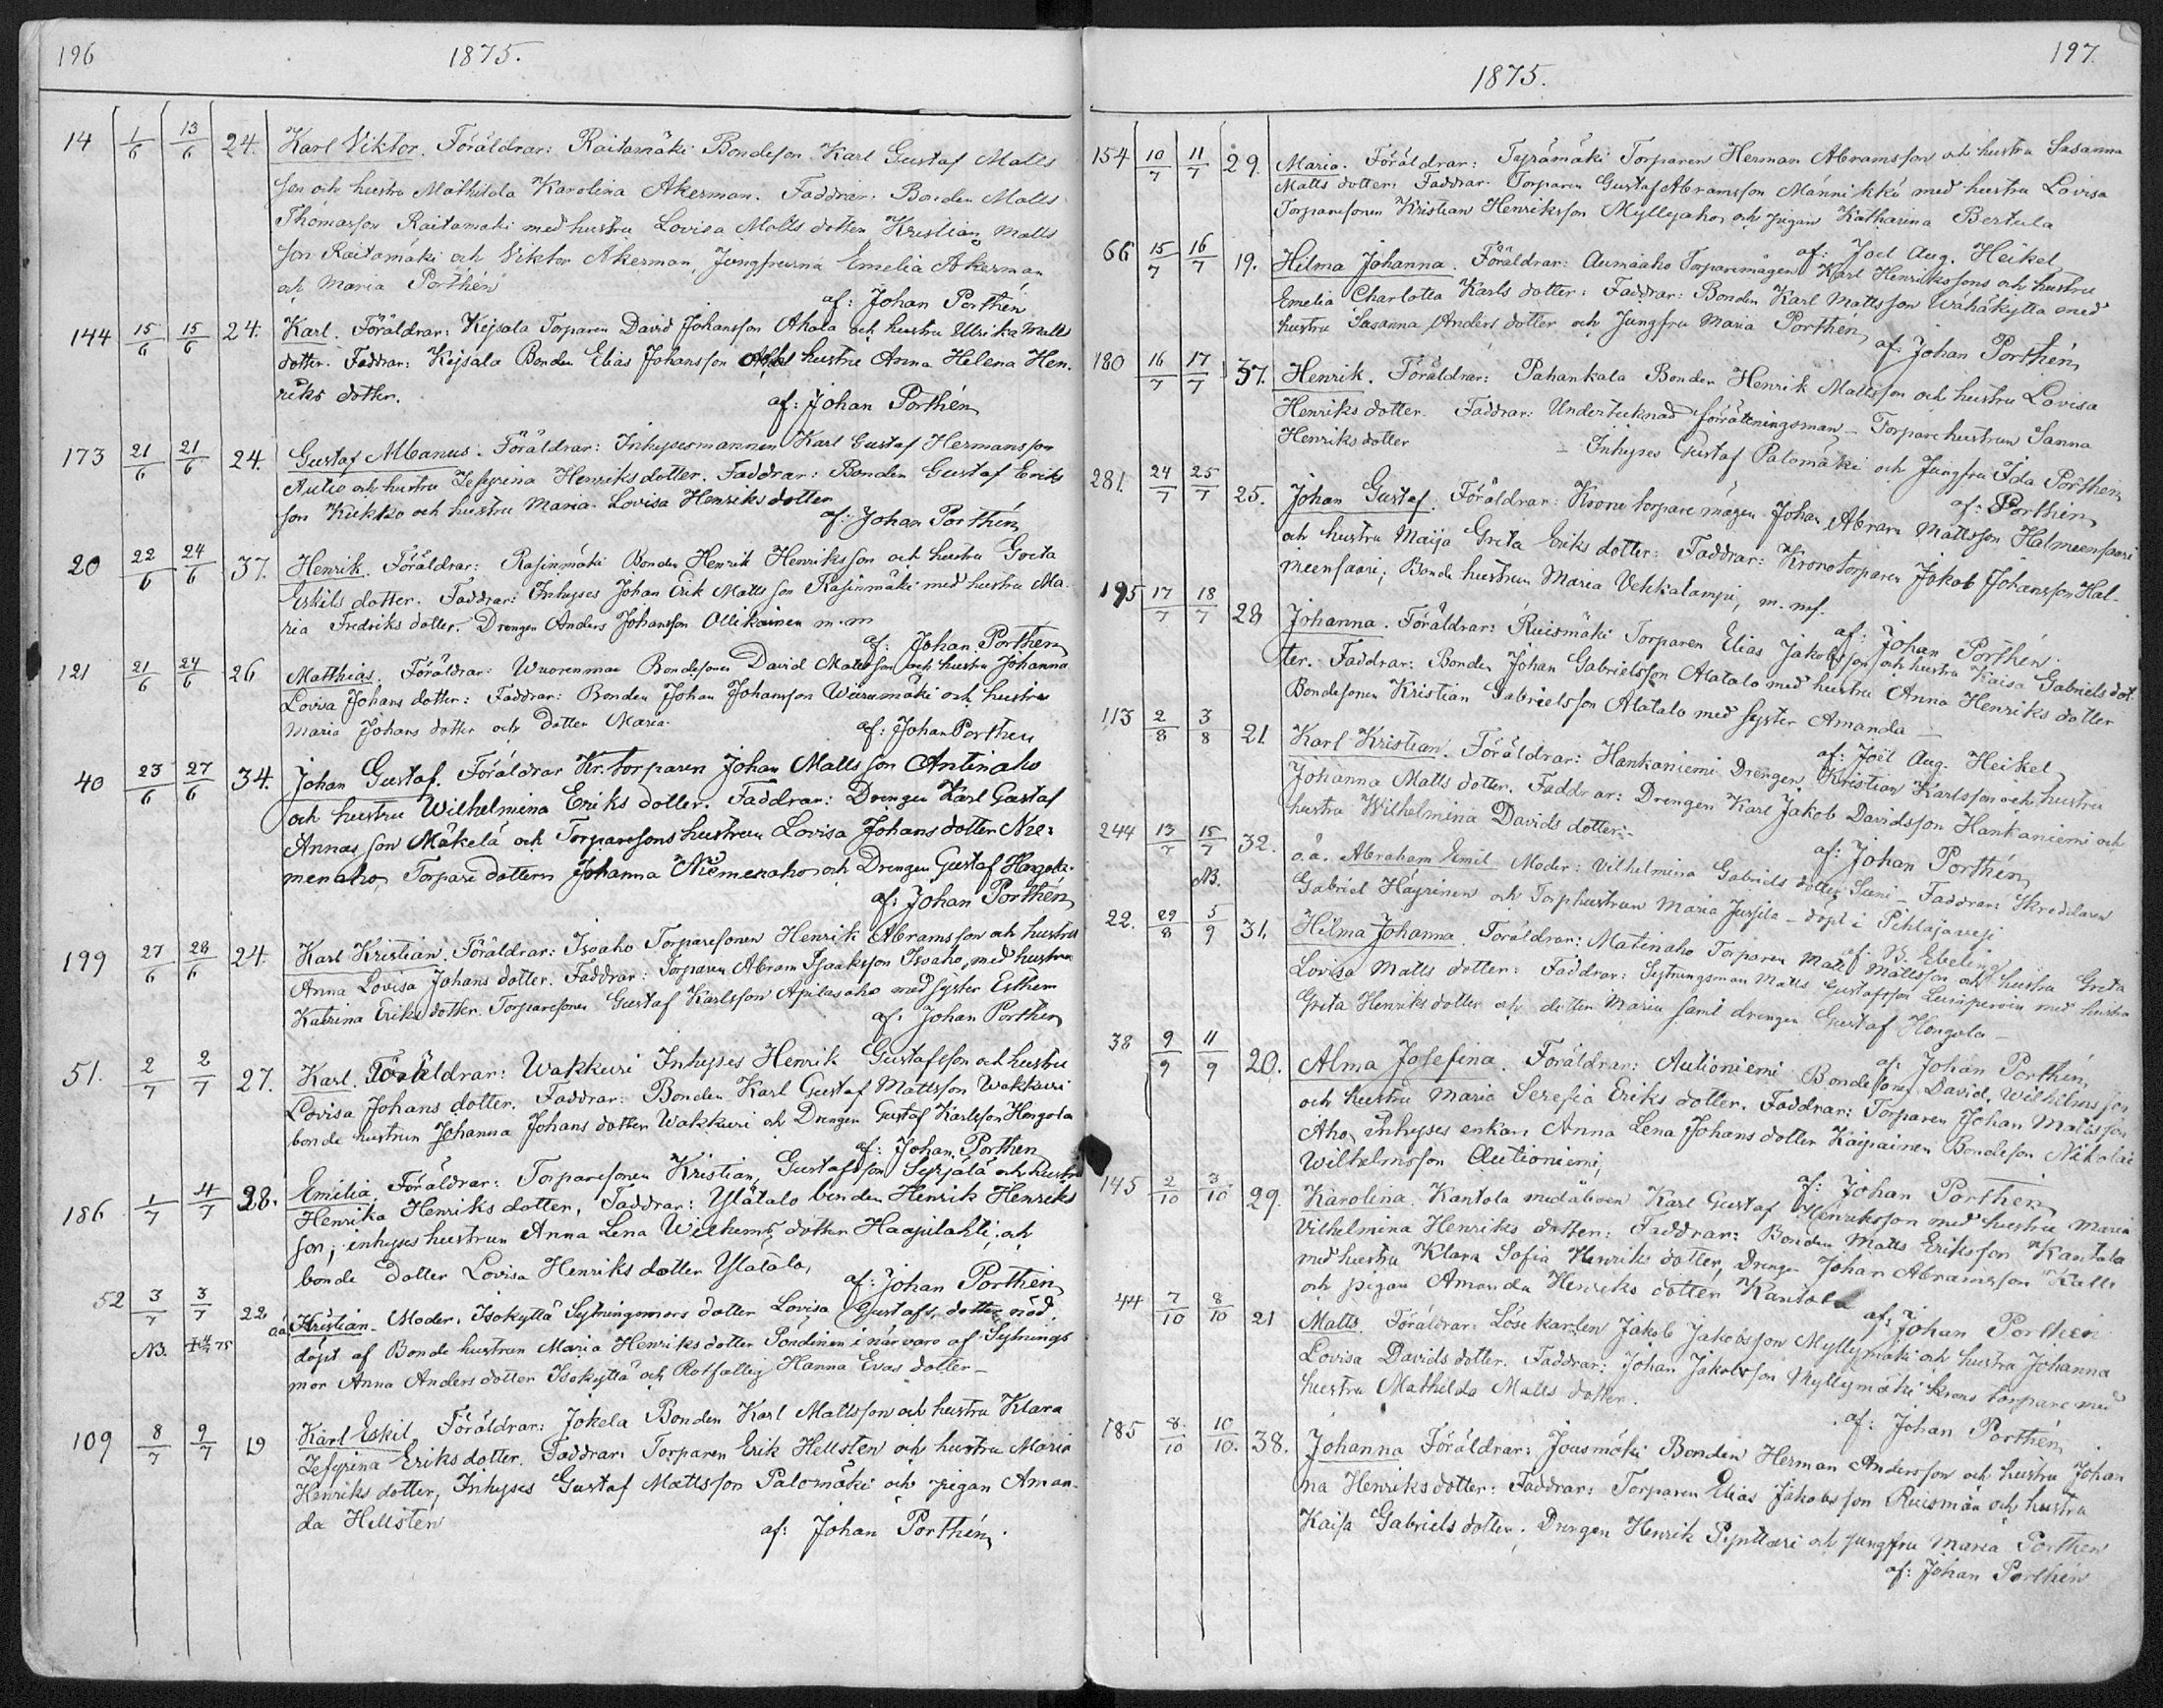 196
1875.
14 1/6 13/6 24. Karl Viktor. Föräldrar: Raitamäki Bondeson Karl Gustaf Matts
son och hustru Mathilda Karolina Åkerman. Faddrar: Bonden Matts
Thomasson Raitamäki med hustru Lovisa Matts dotter, Kristian Matts
son Raitamäki och Viktor Åkerman, Jungfrurna Emelia Åkerman
och Maria Porthén
af: Johan Porthén
144 15/6 15/6 24. Karl. Föräldrar: Keisala Torparen David Johansson Ahola och hustru Ulrika Matts
dotter. Faddrar: Keisala Bonden Elias Johansson och hustru Anna Helena Hen-
riks dotter.
af: Johan Porthén
173 21/6 21/6 24. Gustaf Albanus. Föräldrar: Inhysesmannen Karl Gustaf Hermansson
Autio och hustru Zefyrina Henriksdotter. Faddrar: Bonden Gustaf Eriks
son Kukko och hustru Maria Lovisa Henriksdotter
af: Johan Porthén
20 22/6 24/6 37. Henrik. Föräldrar: Rasinmäki Bonden Henrik Henriksson och hustru Greta
Eskils dotter. Faddrar: Inhyses Johan Erik Mattsson Rasinmäki med hustru Ma-
ria Fredriks dotter. Drengen Anders Johansson Ollikainen m.m
af: Johan Porthén
121 21/6 24/6 26 Matthias. Föräldrar: Wuorenmaa Bondesonen David Mattsson och hustru Johanna
Lovisa Johans dotter: Faddrar: Bonden Johan Johansson Wiirumäki och hustru
Maria Johans dotter och dotter Maria.
af: Johan Porthén
40 23/6 27/6 34. Johan Gustaf. Föräldrar Kr. torparen Johan Mattsson Antinaho
och hustru Wilhelmina Eriks dotter. Faddrar: Drengen Karl Gustaf
Annasson Mäkelä och Torparesons hustrun Lovisa Johans dotter Nie-
menaho, Torpare dottern Johanna Niemenaho och Drengen Gustaf Hangola.
af: Johan Porthén
199 27/6 28/6 24. Karl Kristian. Föräldrar: Isoaho Torparesonen Henrik Abramsson och hustru
Anna Lovisa Johans dotter. Faddrar: Torparen Abram Isaaksson Isoaho, med hustru
Katrina Eriks dotter. Torparesonen Gustaf Karlsson Apilasaho med syster Esther
af: Johan Porthén
51. 2/7 2/7 27. Karl. Föräldrar: Wakkuri Inhyses Henrik Gustafsson och hustru
Lovisa Johans dotter. Faddrar: Bonden Karl Gustaf Mattsson Wakkuri
bonde hustrun Johanna Johans dotter Wakkuri och Drengen Gustaf Karlsson Hongola
af: Johan Porthen
186 1/7 4/7 28. Emilia. Föräldrar: Torparesonen Kristian Gustafsson Syrjälä och hustru
Henrika Henriks dotter, Faddrar: Ylätalo bonden Henrik Henriks
son, inhyses hustrun Anna Lena Wilhelms dotter Haapilahti, och
bonde dotter Lovisa Henriks dotter Ylätalo,
af: Johan Porthén
52 3/7 3/7 22 o.ä. Kristian. Moder: Isokyttä Sytningsmors dotter Lovisa Gustafs dotter nöd
NB. 75 döpt af Bonde hustrun Maria Henriks dotter Pöndinen i närvaro af Sytnings
mor Anna Anders dotter Isokyttä och Rotfattig Hanna Evas dotter –
109 8/7 9/7 19 Karl Eskil. Föräldrar: Jokela Bonden Karl Mattsson och hustru Klara
Zefyrina Eriks dotter. Faddrar: Torparen Erik Hellsten och hustru Maria
Henriks dotter, Inhyses Gustaf Mattsson Palomäki och pigan Aman-
da Hellsten
af: Johan Porthén.
197.
1875.
154 10/7 11/7 29. Maria. Föräldrar: Torparen Herman Abramsson och hustru Sasanna
Matts dotter. Faddrar. Torparen Gustaf Abramsson Männikkö med hustru Lovisa
Torparesonen Kristian Henriksson Myllyaho, och pigan Katharina Bertula
af: Joel Aug. Heikel
66 15/7 16/7 19. Hilma Johanna. Föräldrar: Aumaaho Torparemågen Karl Henrikssons och hustru
Emelia Charlotta Karls dotter: Faddrar: Bonden Karl Mattsson Wähäkyttä med
hustru Sasanna Anders dotter och Jungfru Maria Porthén
af: Johan Porthén
180 16/7 17/7 37. Henrik. Föräldrar: Pahankala Bonden Henrik Mattsson och hustru Lovisa
Henriks dotter. Faddrar: Undertecknad förrättningsman – Torpare hustrun Sanna
Henriksdotter – Inhyses Gustaf Palomäki och Jungfru Ida Porthén
af: Porthén
281. 24/7 25/7 25. Johan Gustaf. Föräldrar: Kronotorpare mågen Johan Abram Mattsson Halmeensaari
och hustru Maija Greta Eriks dotter: Faddrar: Kronotorparen Jakob Johansson Hal-
meensaari, Bonde hustrun Maria Vehkalampi, m. mf.
af: Johan Porthén.
195 17/7 18/7 28 Johanna. Föräldrar: Ruismäki Torparen Elias Jakobsson och hustru Kaisa Gabrielsdot-
ter. Faddrar: Bonden Johan Gabrielsson Alatalo med hustru Anna Henriks dotter
Bondesonen Kristian Gabrielsson Alatalo med syster Amanda –
af: Joël Aug. Heikel
113 2/8 3/8 21. Karl Kristian. Föräldrar: Hankaniemi Drengen Kristian Karlsson och hustru
Johanna Matts dotter. Faddrar: Drengen Karl Jakob Davidsson Hankaniemi och
hustru Wilhelmina Davids dotter: –
af: Johan Porthén
244 13/7 15/7 32. o.ä. Abraham Emil. Moder: Vilhelmina Gabriels dotter Suni – Faddrar: Skreddaren
NB. Gabriel Häyrinen och Torphustrun Maria Jussila – döpt i Pihlajavesi
af. B. Ebeling
22. 29/8 5/9 31. Hilma Johanna. Föräldrar: Matinaho Torparen Matts Mattsson och hustru Greta
Lovisa Matts dotter: Faddrar: Sytningsman Matts Gustafsson med hustru
Greta Henriksdotter och dotter Maria samt drengen Gustaf Hongola –
af: Johan Porthén,
38 9/9 11/9 20. Alma Josefina. Föräldrar: Autioniemi Bondesonen David Wilhelmsson
och hustru Maria Serefia Eriks dotter. Faddrar: Torparen Johan Mattsson
Aho, Inhyses enkan Anna Lena Johans dotter Kaipainen Bondeson Nikolai
Wilhelmsson Autioniemi,
af: Johan Porthén
145 2/10 3/10 29. Karolina. Kantola medåboen Karl Gustaf Henriksson med hustru Maria
Vilhelmina Henriks dotter: Faddrar: Bonden Matts Eriksson Kantola
med hustru Klara Sofia Henriks dotter, Drengen Johan Abramsson Kalli
och pigan Amanda Henriks dotter Kantola
af: Johan Porthén
44 7/10 8/10 21 Matts. Föräldrar: Lösekarlen Jakob Jakobsson Myllymäki och hustru Johanna
Lovisa Davids dotter. Faddrar: Johan Jakobsson Myllymäki krono torpare med
hustru Mathilda Matts dotter.
af: Johan Porthén
185 8/10 10/10. 38. Johanna Föräldrar: Jousmäki Bonden Herman Andersson och hustru Johan
na Henriksdotter: Faddrar: Torparen Elias Jakobsson Ruismäki och hustru
Kaisa Gabriels dotter, Drengen Henrik Pynttäri och jungfru Maria Porthén
af: Johan Porthén